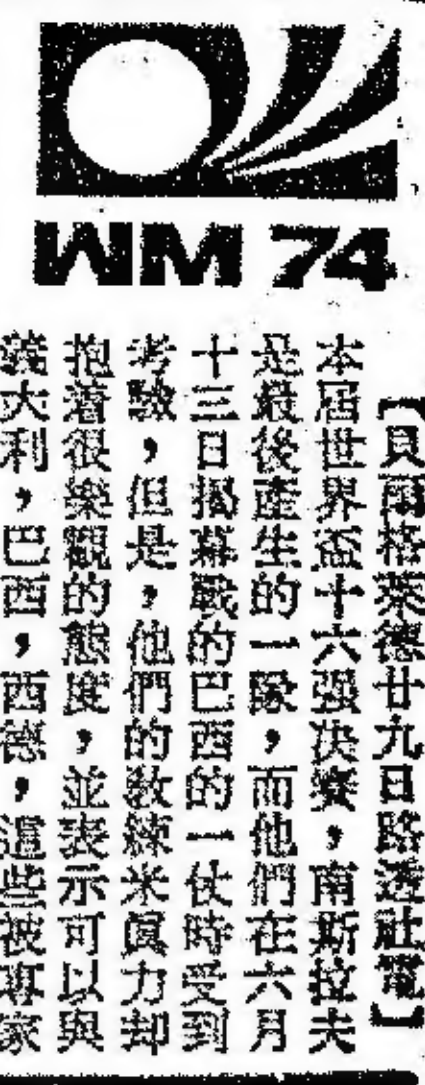 WM 74
【貝爾格萊德廿九日路透社電】
本屆世界盃十六强决賽，南斯拉夫
是最後產生的一隊，而他們在六月
十三日揭幕戰的巴西的一仗時受到
考驗，但是，他們的教練米真力却
抱着很樂觀的態度，並表示可以與
義大利，巴西，西德，這些被專家